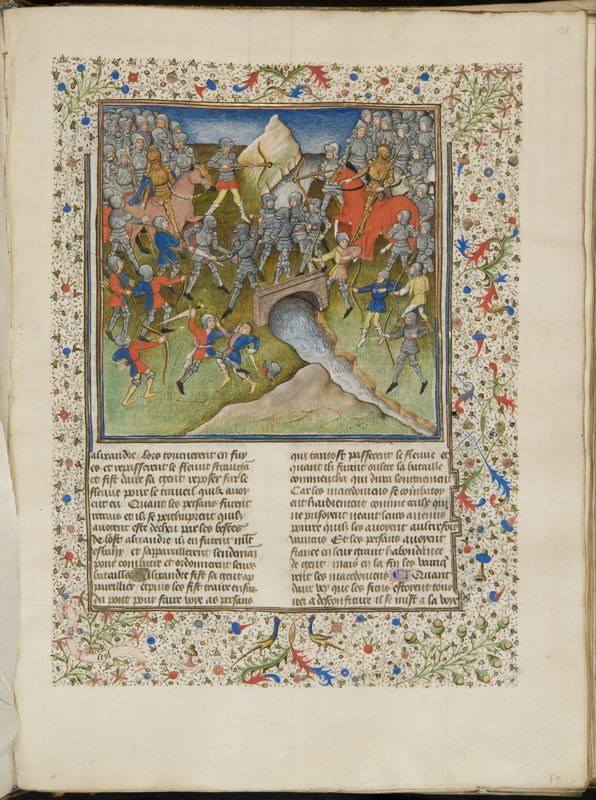 alixandre Lors tournerent en fuy
es et repasserent le fleuve
et fist daire sa gent reposer sur le
fleuve pour le travail quilz avoi
ent eu Quant les persans furent
et ilz se perchuprent quilz
avoient este decheu par les bestes
de lost alixandre ilz en furent
esbahy et sappareillerent lendemai
pour combatre et ordonnerent leurs
batailles Alixandre fist sa gent ap
pareillier depuis les fist traire ensus
du pont pour faire voye as persans
qui tantost passerent le fleuve et
quant ilz furent oultre la bataille
commencha qui dura longuement
Car les macedoniens se combatoy
ent hardiement comme ceulx qui
ne prisoyent neant leurs annemis
pource quilz les avoyent aultresfois
vaincus Et les persans avoyent
fiance en leur grant habondance
de gent mais en la fin les vainq
rent les macedoniens Quant
daire vey que les siens estoyent tour
nez a desconfiture il se mist a la voye
138